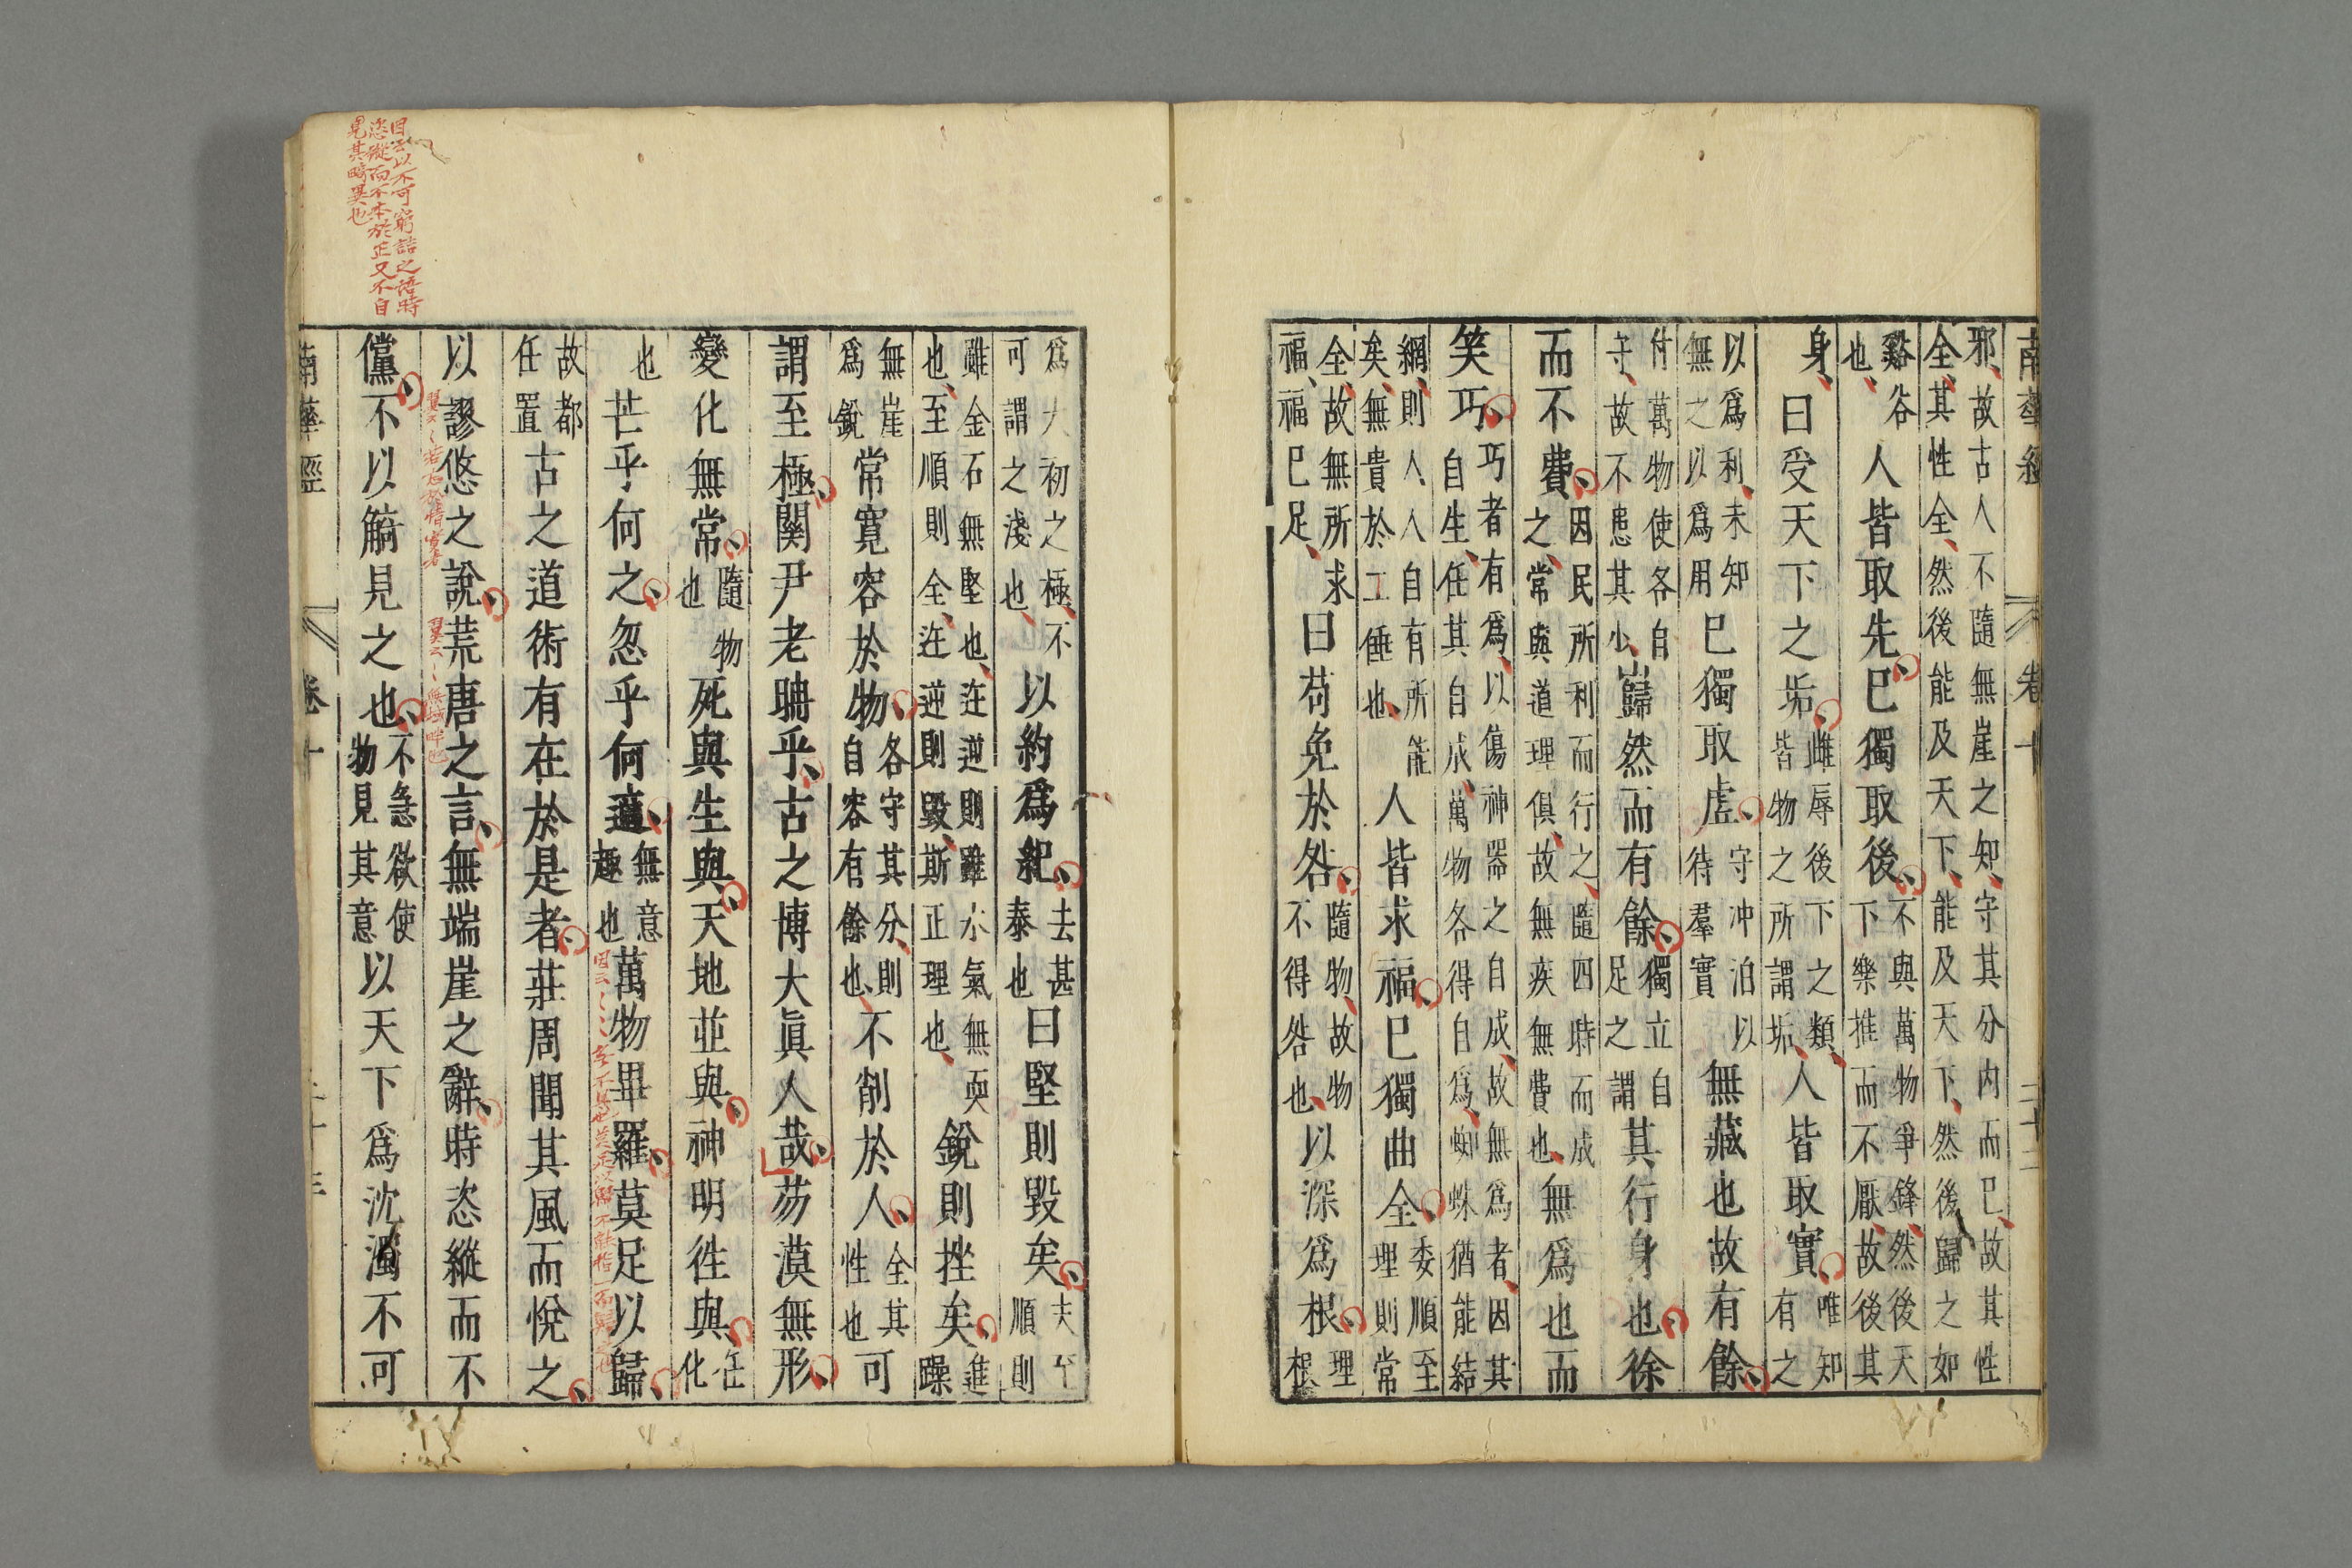 南華經　卷十　三十二
邪故古人不隨無崖之知守其分內而巳故其性
全其性全然後能及天下能及天下然後歸之如
谿谷也人皆取先巳獨取後不與萬物爭鋒然後天下樂推而不厭故後其
身曰受天下之垢雌辱後下之類皆物之所謂垢人皆取實唯知有之
以爲利未知無之以爲用巳獨取虛守冲泊以待羣實無藏也故有餘
付萬物使各自守故不患其少巋然而有餘獨立自足之謂其行身也徐
而不費因民所利而行之隨四時而成之常與道理俱故無疾無費也無爲也而
笑巧巧者有爲以傷神器之自成故無爲者因其自生任其自成萬物各得自爲蜘蛛猶能結
網則人人自有所能矣無貴於工倕也人皆求福巳獨曲全委順至理則常
全故無所求福福巳足曰苟免於咎隨物故物不得咎也以深爲根理根
爲太初之極不可謂之淺也以約爲紀去甚泰也曰堅則毀矣夫至順則
雖金石無堅也迕逆則雖水氣無耎也至順則全迕逆則毀斯正理也銳則挫矣進躁
無崖爲銳常寬容於物各守其分則自容有餘也不削於人全其性也可
謂至極關尹老聃乎古之博大眞人哉芴漠無形
變化無常隨物也死與生與天地並與神明徃與任化
也芒乎何之忽乎何適無意趣也萬物畢羅莫足以歸
故都任置古之道術有在於是者莊周聞其風而悅之
以謬悠之說荒唐之言無端崖之辭時恣縱而不
儻不以觭見之也不急欲使物見其意以天下爲沈濁不可
南華經　卷十
因云以不可窮詰之語時
恣縱而不本於正又不自
見其畸異也